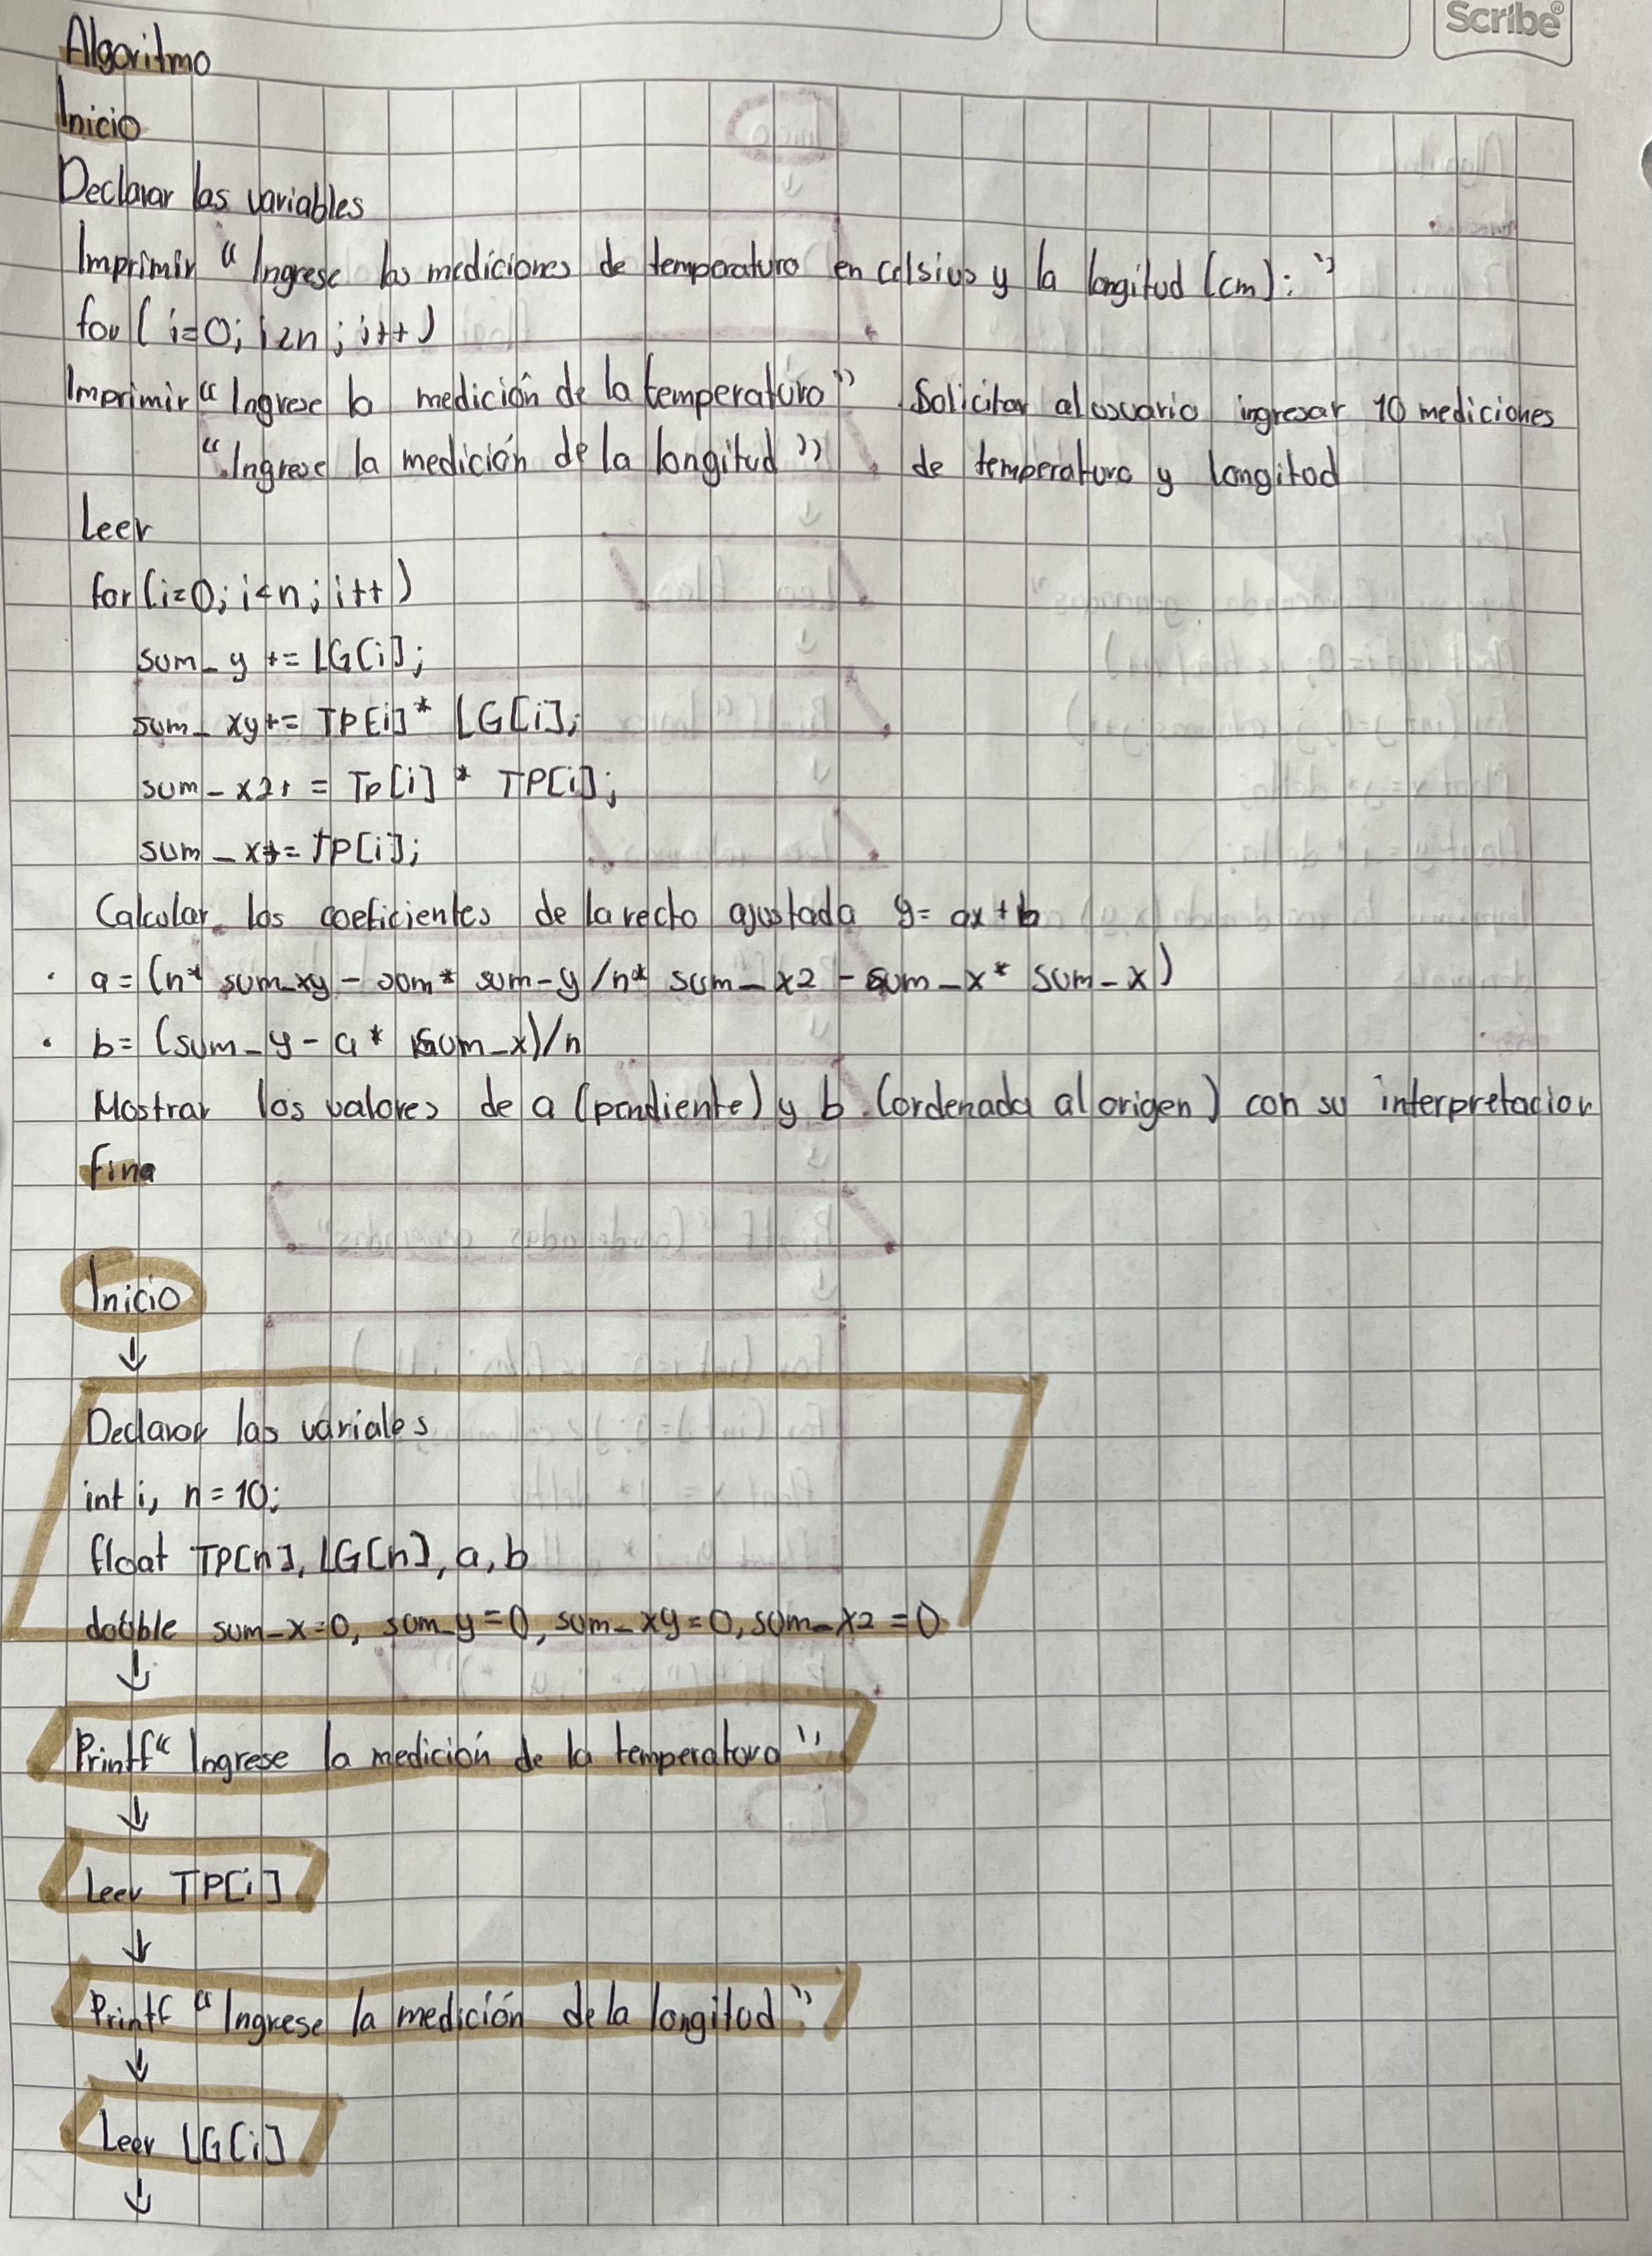 Scribe®
Algoritmo
Inicio
Declarar las variables
Imprimir "Ingrese las mediciones de temperatura en celsius y la longitud (cm):"
for (i=0; i<n; i++)
Imprimir "Ingrese la medición de la temperatura" Solicitar al usuario ingresar 10 mediciones
"Ingrese la medición de la longitud" de temperatura y longitud
Leer
for (i=0; i<n; i++)
sum_y += LG[i];
sum_xy += TP[i] * LG[i];
sum_x2+ = Tp[i] * TP[i];
sum_x+= TP[i];
Calcular los coeficientes de la recta ajustada y= ax+b
· a = (n* sum_xy - sum* sum-y /n* sum_x2 - sum_x* sum-x)
· b= (sum_y - a* sum_x)/n
Mostrar los valores de a (pendiente) y b (ordenada al origen) con su interpretacion
fina
Inicio
↓
Declarar las variales
int i, n = 10;
float TP[n], LG[n], a, b
double sum_x=0, sum_y=0, sum_xy=0, sum_x2=0
↓
Printf "Ingrese la medición de la temperatura"
↓
Leer TP[i]
↓
Printf "Ingrese la medición de la longitud"
↓
Leer LG[i]
↓